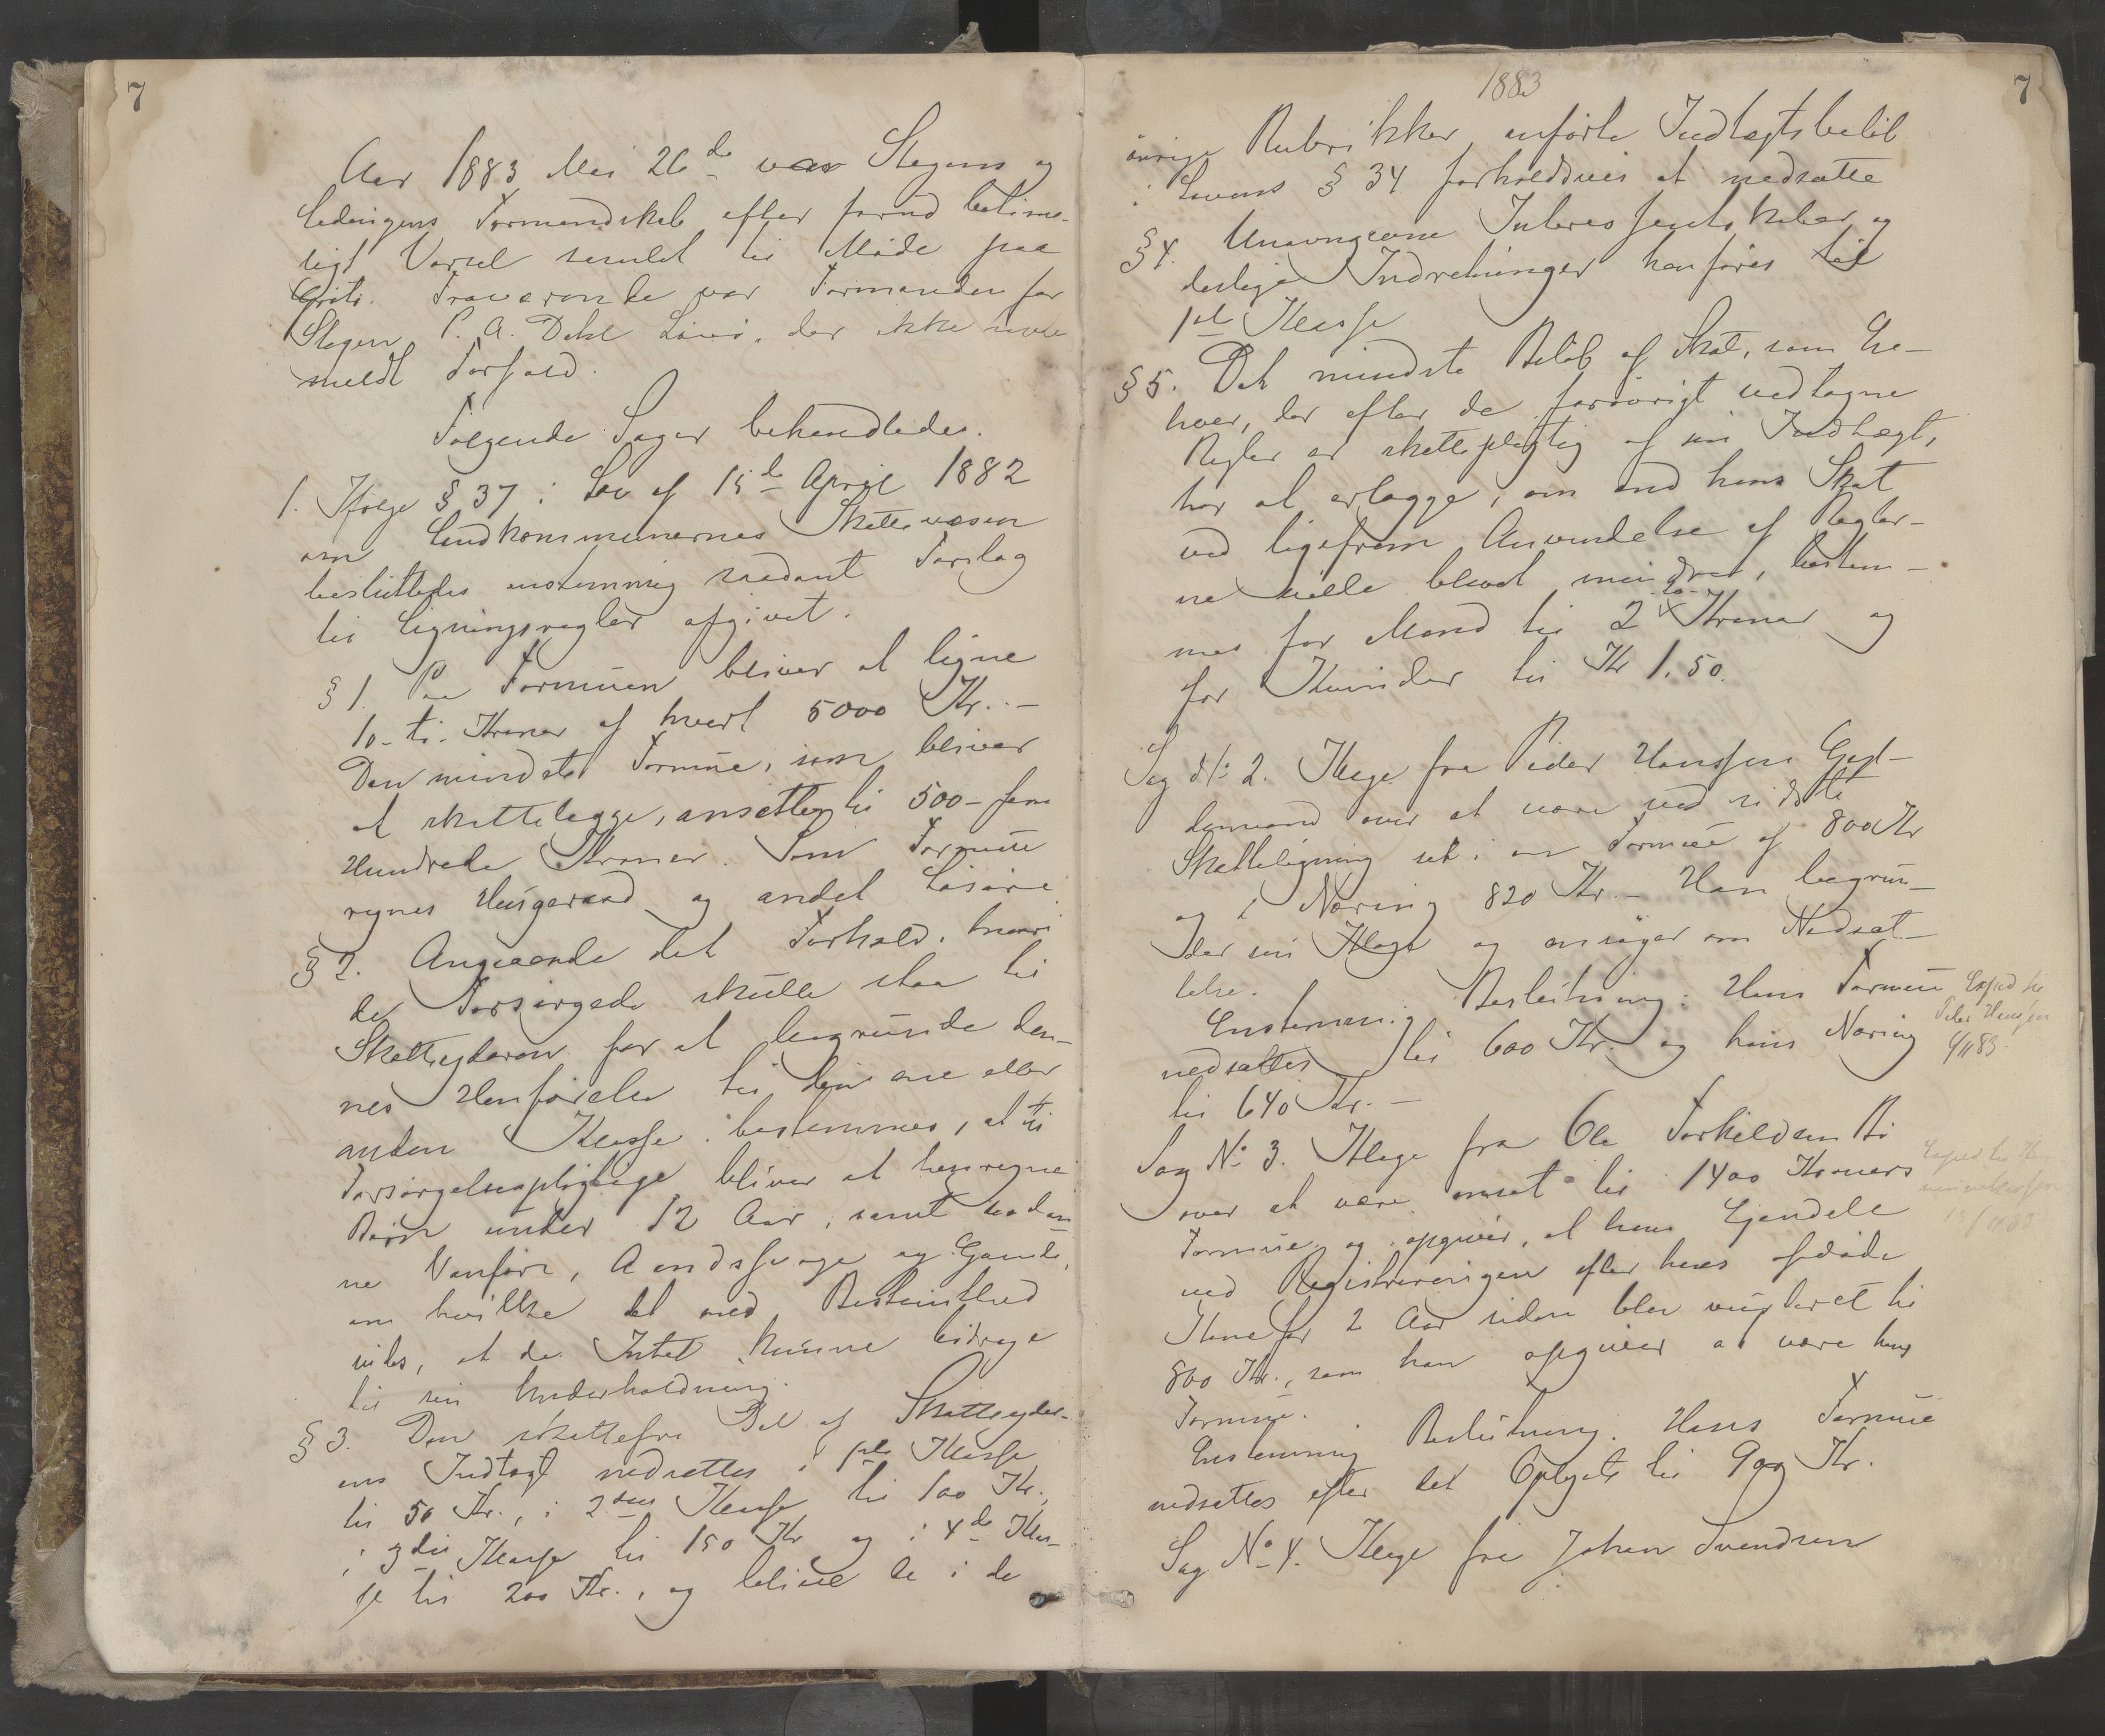 7
Aar 1883 Mai 26de var Stegens og
Ledingens Formandskab efter forud betime-
ligt Varsel samlet til Møde paa
Fraværende var Formanden for
Stegen P. A. Dahl Løvø, der ikke havde
meldt Forfald.
Følgende Sager behandledes.
1. Ifølge § 37 i Lov af 15de April 1882
om Landkommunernes Skattevæsen
besluttedes enstemmig saadant Forslag
til Ligningsregler afgivet.
§ 1. Paa Formuen bliver at ligne
10 - ti - Kroner af hvert 5000 Kr. -
Den mindste Formue, som bliver
at skattelægge, ansættes til 500 - fem
Hundrede Kroner. Som Formue
regnes Husgeraad og andet Løsøre.
§ 2. Angaaende det Forhold, hvori
de Forsørgede skulle staa til
Skatteyderen for at begrunde den-
nes Henførelse til den ene eller
anden Klasse bestemmes, at til
Forsørgelsespligtige bliver at henregne
Børn under 12 Aar, samt saadan-
ne Vanføre, Aandssvage og Gamle,
om hvilke det med Bestemthed
vides, at de Intet kunne bidrage
til sin Underholdning.
§ 3. Den skattefri Del af Skatteyder-
ens Indtægt nedsættes i 1ste Klasse
til 50 Kr., i 2den Klasse til 100 Kr.,
i 3die Klasse til 150 Kr og i 4de Klas-
se til 200 Kr., og blive de i de
1883
7
øvrige Rubrikker anførte Indtægtsbeløb
i Lovens § 34 forholdsvis at nedsætte
§ 4. Unavngivne Interessentskaber og
deslige Indretninger henføres til
1ste Klasse
§ 5. Det mindste Beløb af Skat, som En-
hver, der efter de forøvrigt vedtagne
Regler er skattepligtig af sin Indtægt,
har at erlægge, om end hans Skat
ved ligefrem Anvendelse af Regler-
ne vilde blevet mindre, bestem-
mes for Mænd til 2 - to - Kroner og
for Kvinder til Kr 1.50.
Sag No 2. Klage fra Peder Hanssen
over at være ved sidste
Skatteligning sat i en Formue af 800 Kr
og i Næring 820 Kr. - Han begrun-
der sin Klage og ansøger om Nedsæt-
telse.
Enstemmig Beslutning: Hans Formue
nedsættes til 600 Kr. og hans Næring
til 640 Kr. -
Exped til
Peder Hanssen
6/11 83.
Sag No 3. Klage fra Ole Torkildsen Bø
over at være ansat til 1400 Kroners
Formue og opgiver, at hans Eiendele
ved Registreringen efter hans afdøde
Kone for 2 Aar siden blev vurderet til
800 Kr., som han opgiver at være hans
Formue.
Enstemmig Beslutning. Hans Formue
nedsættes efter det Oplyste til 900 Kr.
Sag No 4. Klage fra Johan Svendsen